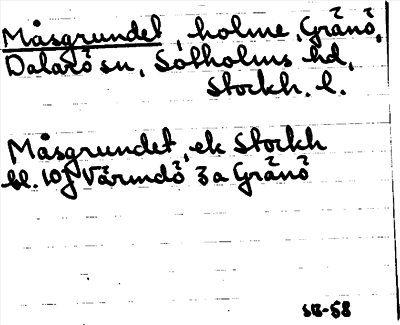 Måsgrundet, holme, Gränö,
Dalarö sn, Sotholms hd,
Stockh. l.
Måsgrundet, ek Stockh
bl. 109 Värmdö 3a Gränö
SÆ-58